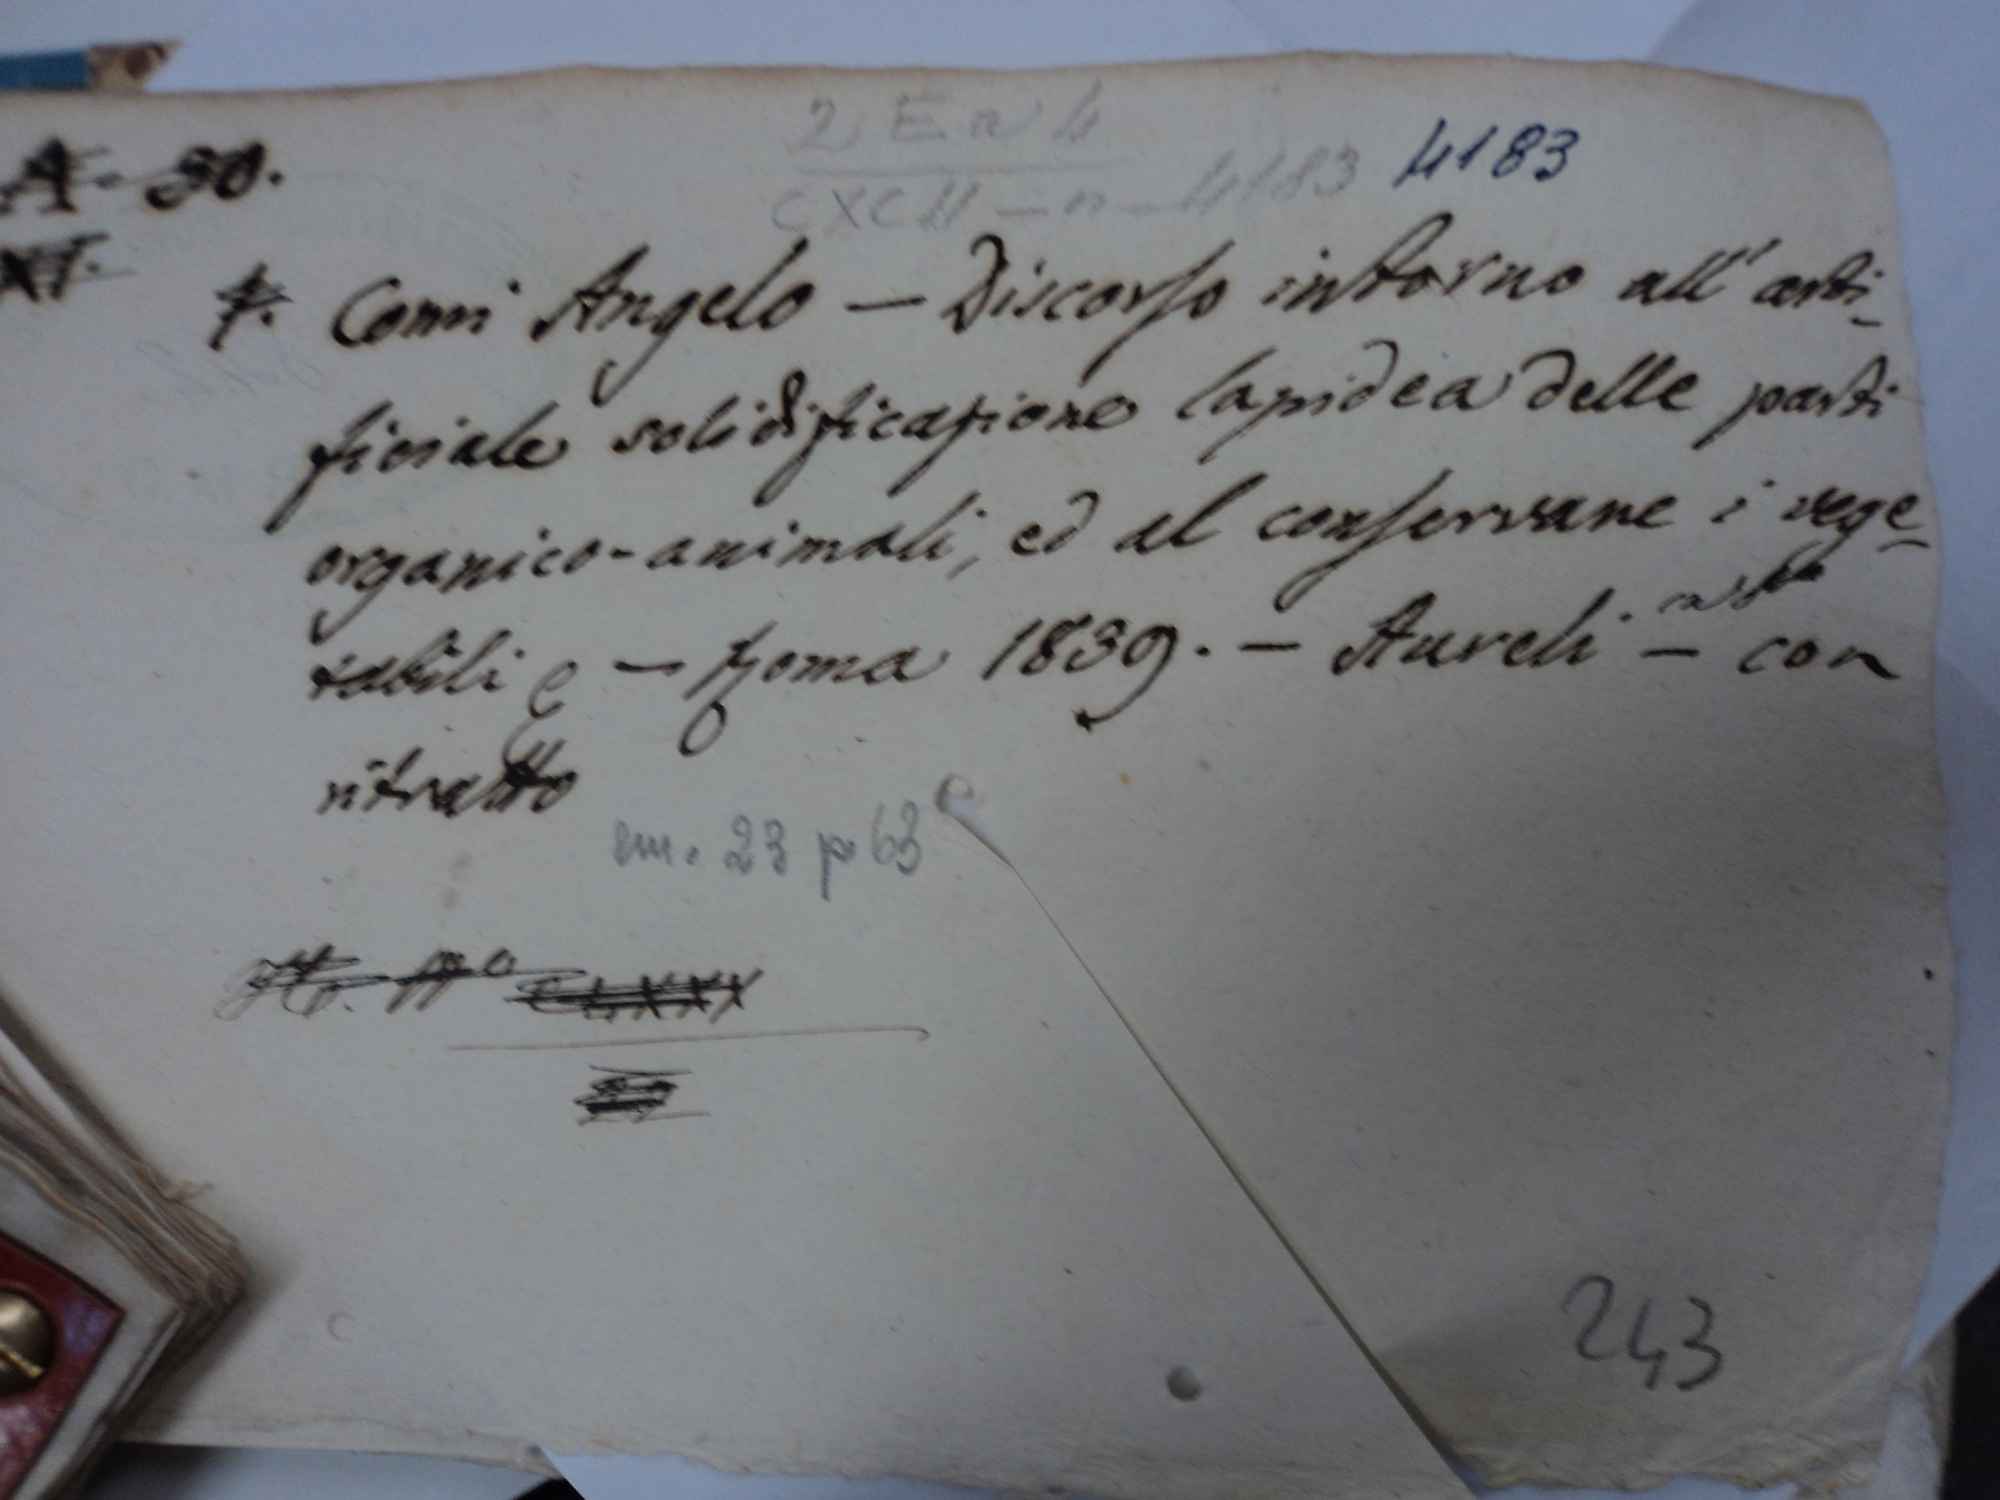 2 E n 4
A. 30.
CXCII - n - 4183 4183
XI.
7. Comi Angelo — Discorso intorno all'arti-
ficiale solidificazione lapidea delle parti
organico-animali, ed al conservane i vege-
tabili — Roma 1839. — Aureli — con
ritratto
23 p 63
CLXXX
243